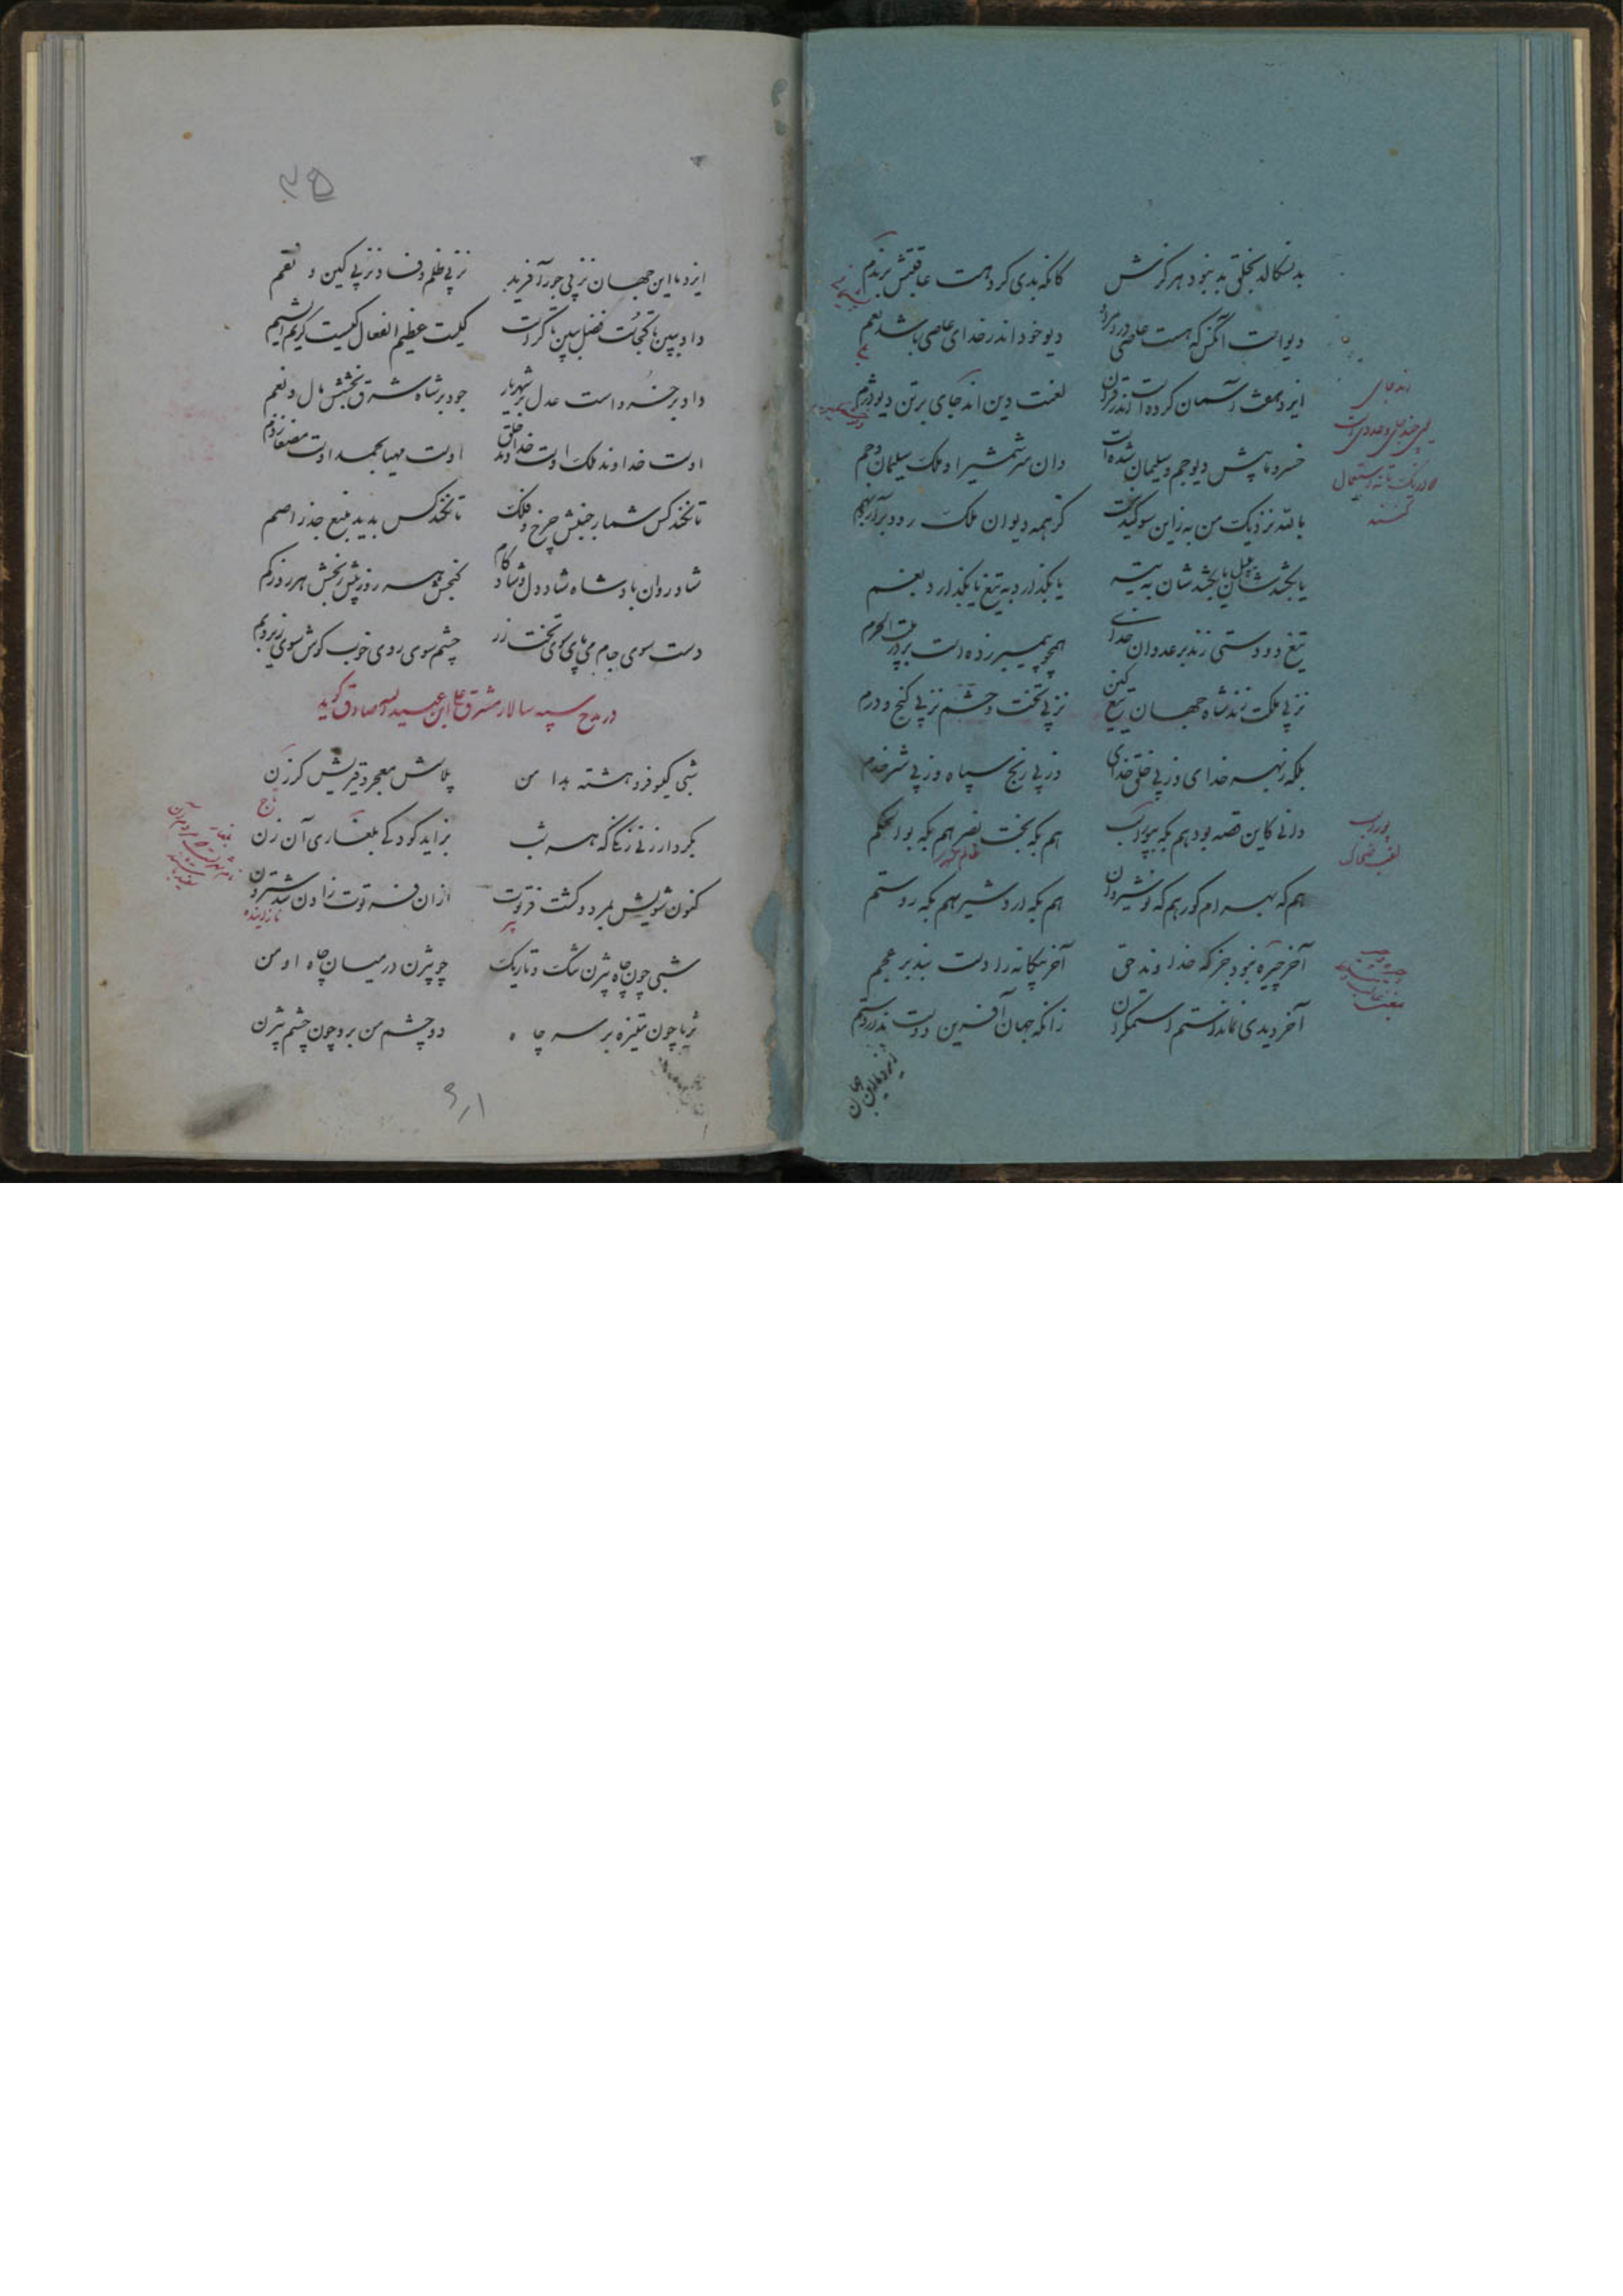 بد نسگالد بخلق بد نبود هرگزش    کانکه بدی کرد هست عاقبتش بر ندم
دیو است آنکس که هست عاصی در امر او    دیو خود اندر خدای عاصی باشد نعم
ایزد هفت آسمان کرده است اندر قران    لعنت این اند جای بر تن دیو دژم
خسرو ما پیش دیو جم و سلیمان شده است    وان سر شمشیر او ملک سلیمان و جم
بالله نزدیک من به زاین سوگند نیست    کز همه دیوان ملک دود برآرد بهم
یا بکشدشان به پیل یا بکشدشان به تیر    یا بگذارد به تیغ یا بگذارد بغم
تیغ دو دستی زند بر عدوان خدای    همچو پیمبر زده است بر در بیت الحرم
نز پی ملکت زند شاه جهان تیغ کین    نز پی تخت و حشم نز پی گنج و درم
بلکه ز بهر خدای وز پی خلق خدای    وز پی رنج سپاه وز پی شر خدم
دانی کاین قصه بود هم بگه بیوراسب    هم بگه بخت نصر هم بگه بوالحکم
هم گه بهرام گور هم گه نوشیروان    هم بگه اردشیر هم بگه رستم
آخر چیره نبود جز که خداوند حق    آخر بیگانه را دست نبد بر عجم
آخر دیدی نماند استم استمگران    زانکه جهان آفرین دوست ندارد ستم
ایزد ما این جهان
اند جای
بیوراسب
لقب ضحاک
۳۵
ایزد ما این جهان نز پی جور آفرید    نز پی ظلم و فساد نز پی کین و نقم
داد ببین تا کجاست فضل ببین تا کراست    کیست عظیم الفعال کیست کریم الشیم
داد بر خسرو است عدل بر شهریار    جود بر شاه شرق بخشش مال و نعم
اوست خداوند ملک اوست خداوند خلق    اوست مهیا بحمد اوست مصفا ز ذم
تا نکند کس شمار جنبش چرخ و فلک    تا نکند کس پدید منبع جذر اصم
شاد روان باد شاه شاد دل و شاد کام    گنجش هر روز بیش رنجش هر روز کم
دست سوی جام می پای سوی تخت زر    چشم سوی روی خوب گوش سوی زیر و بم
در مدح سپه سالار مشرق علی ابن عبید الله صادق گوید
شبی گیسو فرو هشته بدامن    پلاسش معجر و قیرینش گرزن
تاج
بکردار زنی زنگی که هر شب    بزاید کودکی بلغاری آن زن
کنون شویش بمرد و گشت فرتوت    از آن فرتوت زادن شد سترون
پیر    نازاینده
شبی چون چاه بیژن تنگ و تاریک    چو بیژن در میان چاه او من
ثریا چون منیژه بر سر چاه    دو چشم من برو چون چشم بیژن